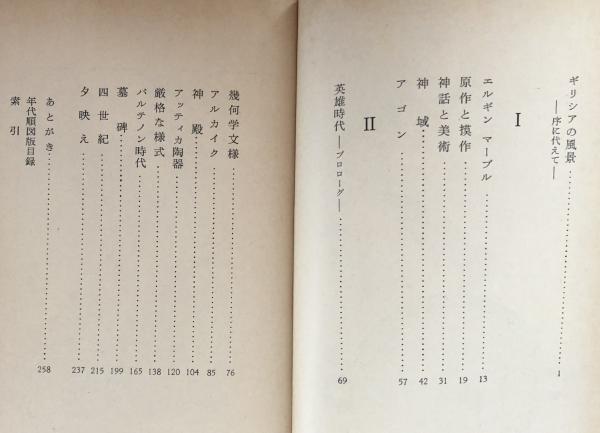 ギリシアの風景 ……… 1
――序に代えて――
I
エルギン マーブル ……… 13
原作と摸作 ……… 19
神話と美術 ……… 31
神域 ……… 42
アゴン ……… 57
II
英雄時代――プロローグ―― ……… 69
幾何学文様 ……… 76
アルカイク ……… 85
神殿 ……… 104
アッティカ陶器 ……… 120
厳格な様式 ……… 138
パルテノン時代 ……… 165
墓碑 ……… 199
四世紀 ……… 215
夕映え ……… 237
あとがき ……… 258
年代順図版目録
索引